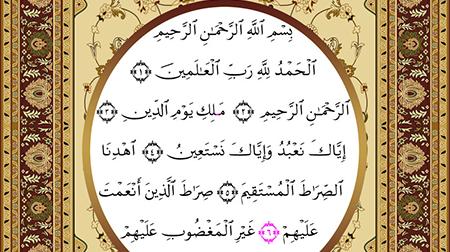 بِسْمِ ٱللَّهِ ٱلرَّحْمَٰنِ ٱلرَّحِيمِ
ٱلْحَمْدُ لِلَّهِ رَبِّ ٱلْعَٰلَمِينَ ﴿١﴾
ٱلرَّحْمَٰنِ ٱلرَّحِيمِ ﴿٢﴾ مَلِكِ يَوْمِ ٱلدِّينِ ﴿٣﴾
إِيَّاكَ نَعْبُدُ وَإِيَّاكَ نَسْتَعِينُ ﴿٤﴾ ٱهْدِنَا
ٱلصِّرَٰطَ ٱلْمُسْتَقِيمَ ﴿٥﴾ صِرَٰطَ ٱلَّذِينَ أَنْعَمْتَ
عَلَيْهِمْ ﴿٦﴾ غَيْرِ ٱلْمَغْضُوبِ عَلَيْهِمْ